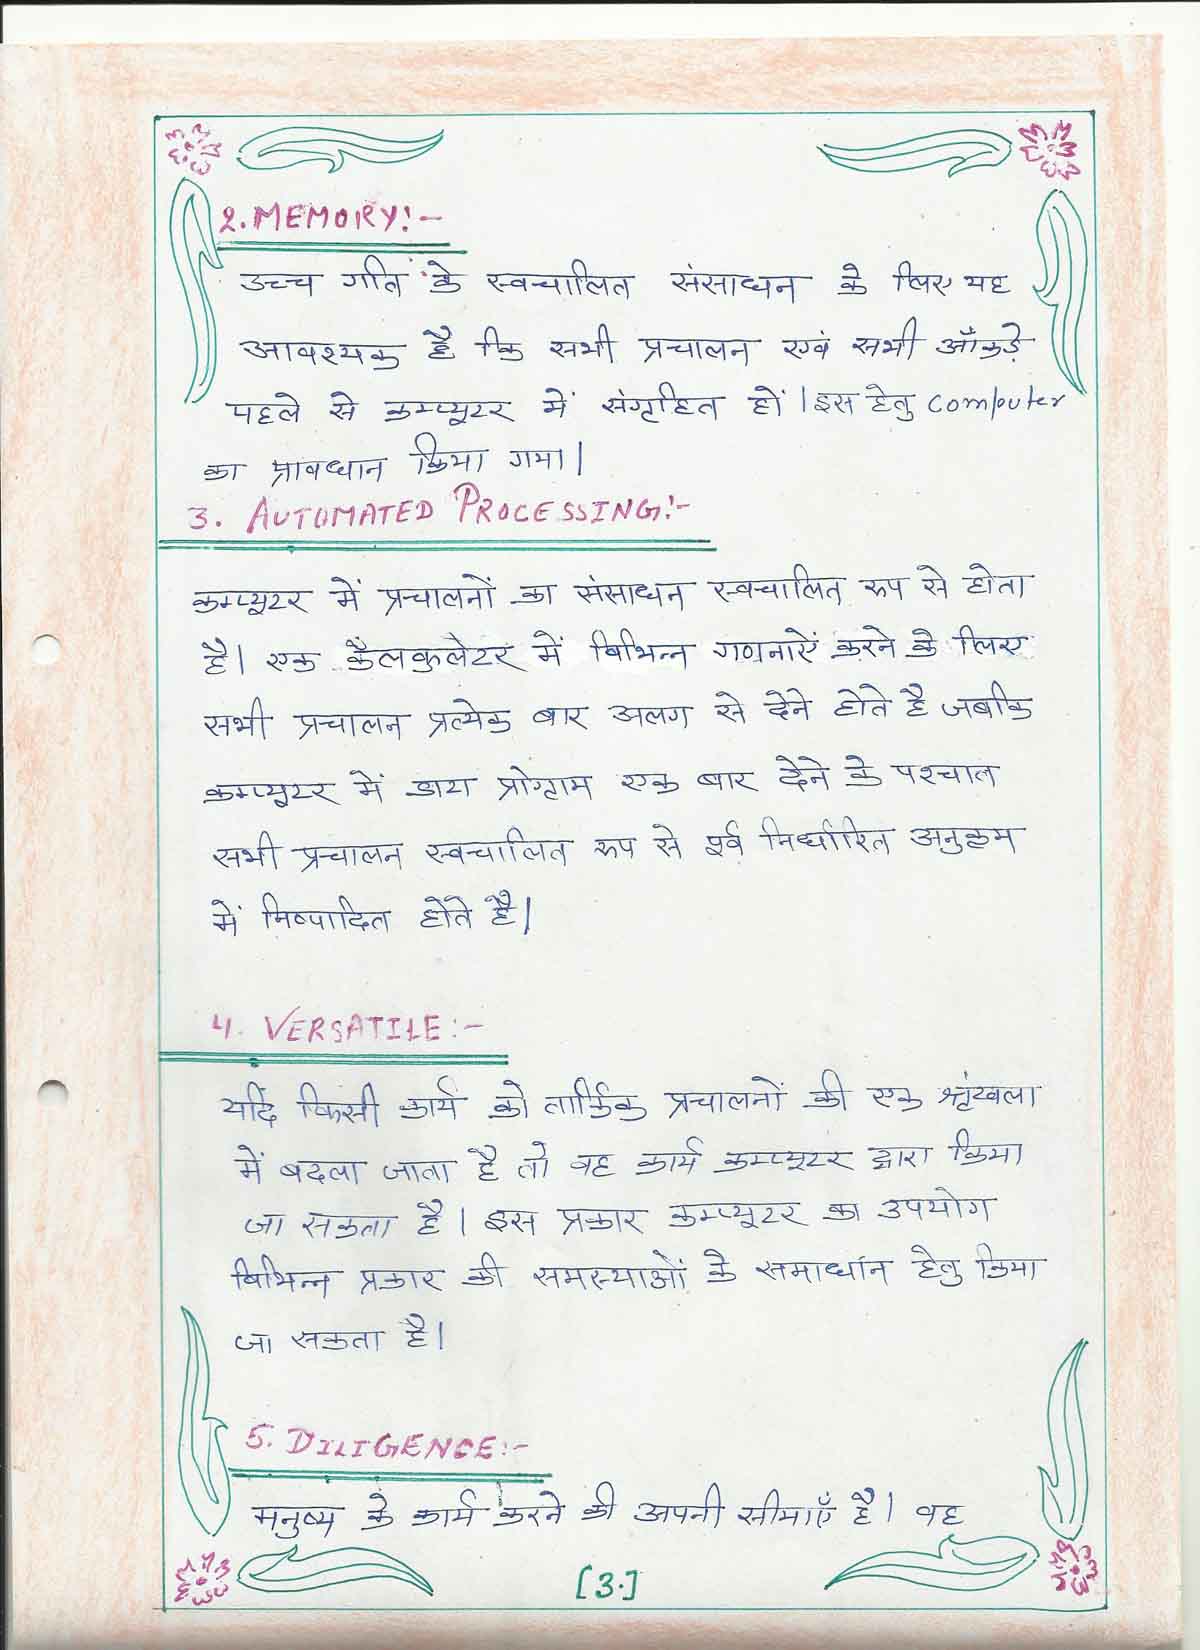 2. MEMORY:-
उच्च गति के स्वचालित संसाधन के लिए यह
आवश्यक है कि सभी प्रचालन एवं सभी आँकड़े
पहले से कम्प्यूटर में संगृहित हों। इस हेतु computer
का प्रावधान किया गया।
3. AUTOMATED PROCESSING:-
कम्प्यूटर में प्रचालनों का संसाधन स्वचालित रूप से होता
है। एक कैलकुलेटर में विभिन्न गणनाऐं करने के लिए
सभी प्रचालन प्रत्येक बार अलग से देने होते है जबकि
कम्प्यूटर में डाटा प्रोग्राम एक बार देने के पश्चात
सभी प्रचालन स्वचालित रूप से पूर्व निर्धारित अनुक्रम
में निष्पादित होते है।
4. VERSATILE:-
यदि किसी कार्य को तार्किक प्रचालनों की एक श्रृंखला
में बदला जाता है तो वह कार्य कम्प्यूटर द्वारा किया
जा सकता है। इस प्रकार कम्प्यूटर का उपयोग
विभिन्न प्रकार की समस्याओं के समाधान हेतु किया
जा सकता है।
5. DILIGENCE:-
मनुष्य के कार्य करने की अपनी सीमाएँ है। वह
[3.]